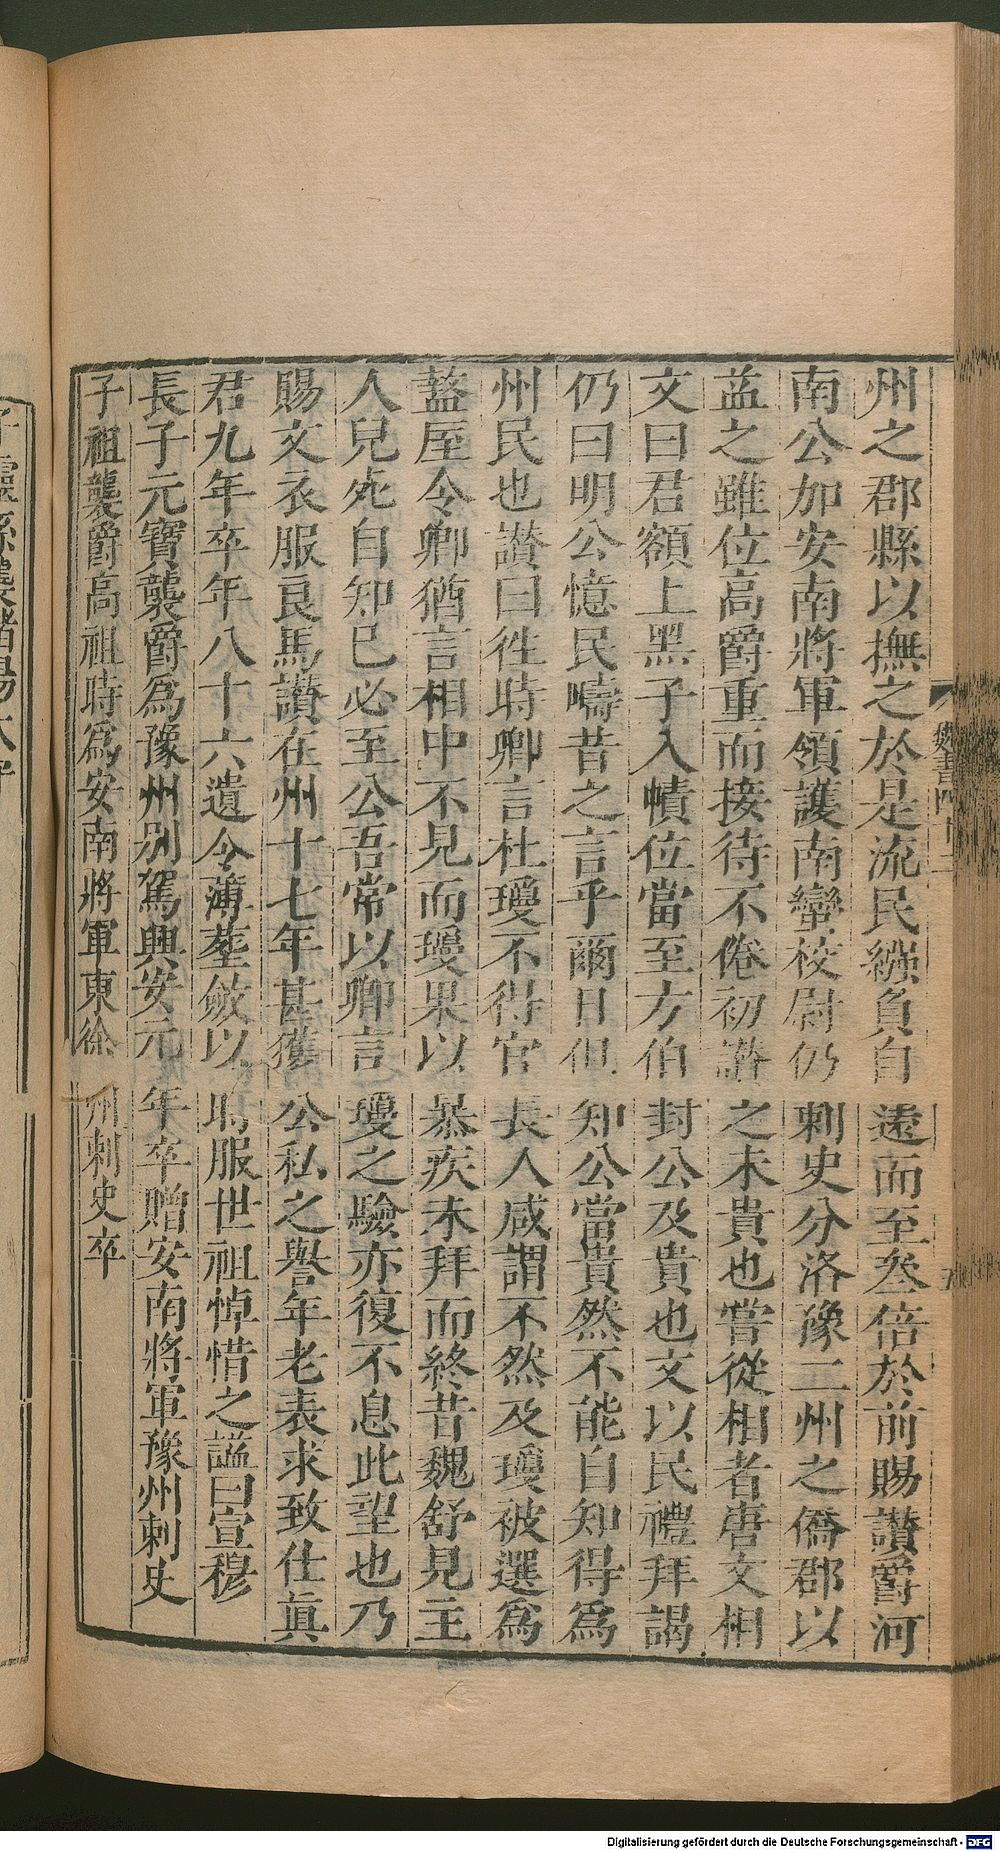 州之郡縣以撫之於是流民繦負自遠而至叄倍於前賜讃爵河
南公加安南將軍領護南蠻校尉仍刺史分洛豫二州之僑郡以
益之雖位高爵重而接待不倦初讃之未貴也嘗從相者唐文相
文曰君額上黑子入幘位當至方伯封公及貴也文以民禮拜謁
仍曰明公憶民疇昔之言乎爾日但知公當貴然不能自知得爲
州民也讃曰徃時卿言杜瓊不得官長人咸謂不然及瓊被選爲
盩厔令卿猶言相中不見而瓊果以暴疾未拜而終昔魏舒見主
人兒死自知巳必至公吾常以卿言瓊之驗亦復不息此望也乃
賜文衣服良馬讃在州十七年甚獲公私之譽年老表求致仕眞
君九年卒年八十六遺令薄葬斂以時服世祖悼惜之謚曰宣穆
長子元寶襲爵爲豫州别駕興安元年卒贈安南將軍豫州刺史
子祖襲爵高祖時爲安南將軍東徐州刺史卒
魏書四十二
五
Digitalisierung gefördert durch die Deutsche Forschungsgemeinschaft - DFG